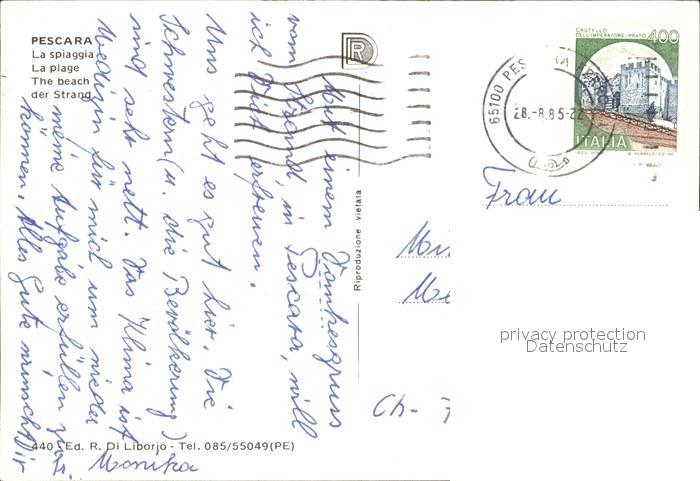 PESCARA
La spiaggia
La plage
The beach
der Strand
Mit einem Dankesgruss
vom Strand, in Pescara, will
ich Dich erfreuen.
Uns geht es gut hier. Die
Schwestern (u. die Bevölkerung)
sind sehr nett. Das Klima ist
Medizin für mich um wieder
meine Aufgabe erfüllen zu
können. Alles Gute wünscht Dir
Monika
440 - Ed. R. Di Liborio - Tel. 085/55049 (PE)
Riproduzione vietata
R
65100 PES
28.-8.85-22
CASTELLO
DELL'IMPERATORE - PRATO
400
ITALIA
Frau
Ch-
privacy protection
Datenschutz